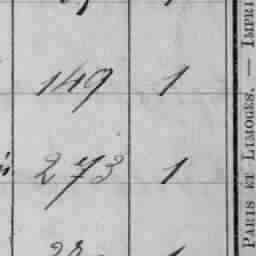 149 1
273 1
PARIS ET LIMOGES. — IMPRI